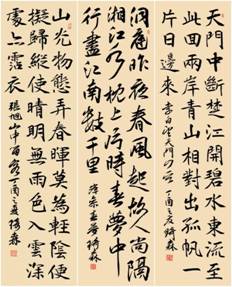 天門中斷楚江開碧水東流至
此回兩岸青山相對出孤帆一
片日邊來 李白望天門山 丁酉之夏
洞庭昨夜春風起故人尚隔
湘江水枕上片時春夢中
行盡江南數千里 岑參春夢
山光物態弄春暉莫為輕陰便
擬歸縱使晴明無雨色入雲深
處亦霑衣 張旭山中留客 丁酉之夏